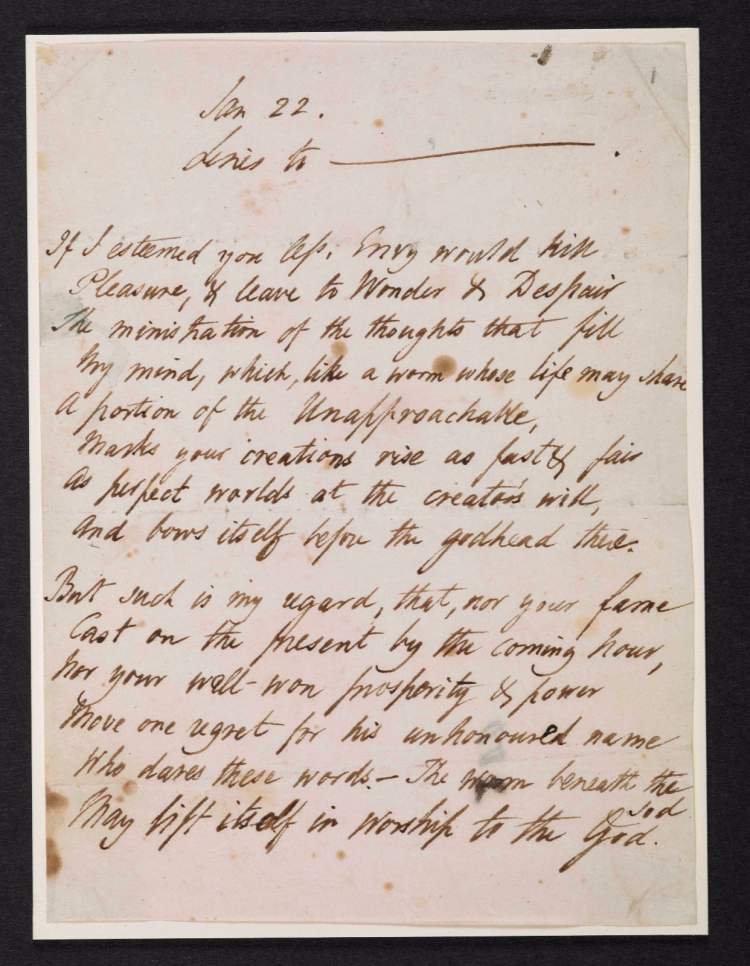 Jan 22.
Lines to ———.
If I esteemed you less, Envy would kill
Pleasure, & leave to Wonder & Despair
The ministration of the thoughts that fill
My mind, which, like a worm whose life may share
A portion of the Unapproachable,
Marks your creations rise as fast & fair
As perfect worlds at the creator's will,
And bows itself before the godhead there.
But such is my regard, that, nor your fame
Cast on the present by the coming hour,
Nor your well-won prosperity & power
Move one regret for his unhonoured name
Who dares these words.— The worm beneath the
sod
May lift itself in worship to the God.